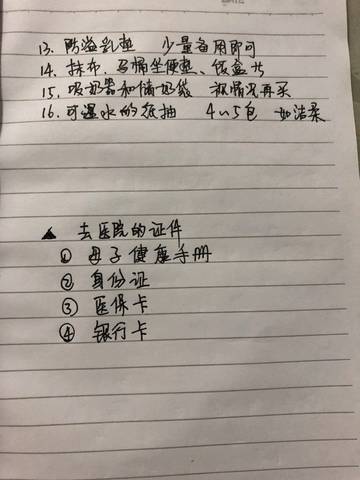 13. 防溢乳垫 少量备用即可
14. 抹布、马桶坐便垫、饭盒
15. 吸奶器和储奶袋 视情况再买
16. 可湿水的纸抽 4~5包 如洁柔
▲ 去医院的证件
① 母子健康手册
② 身份证
③ 医保卡
④ 银行卡